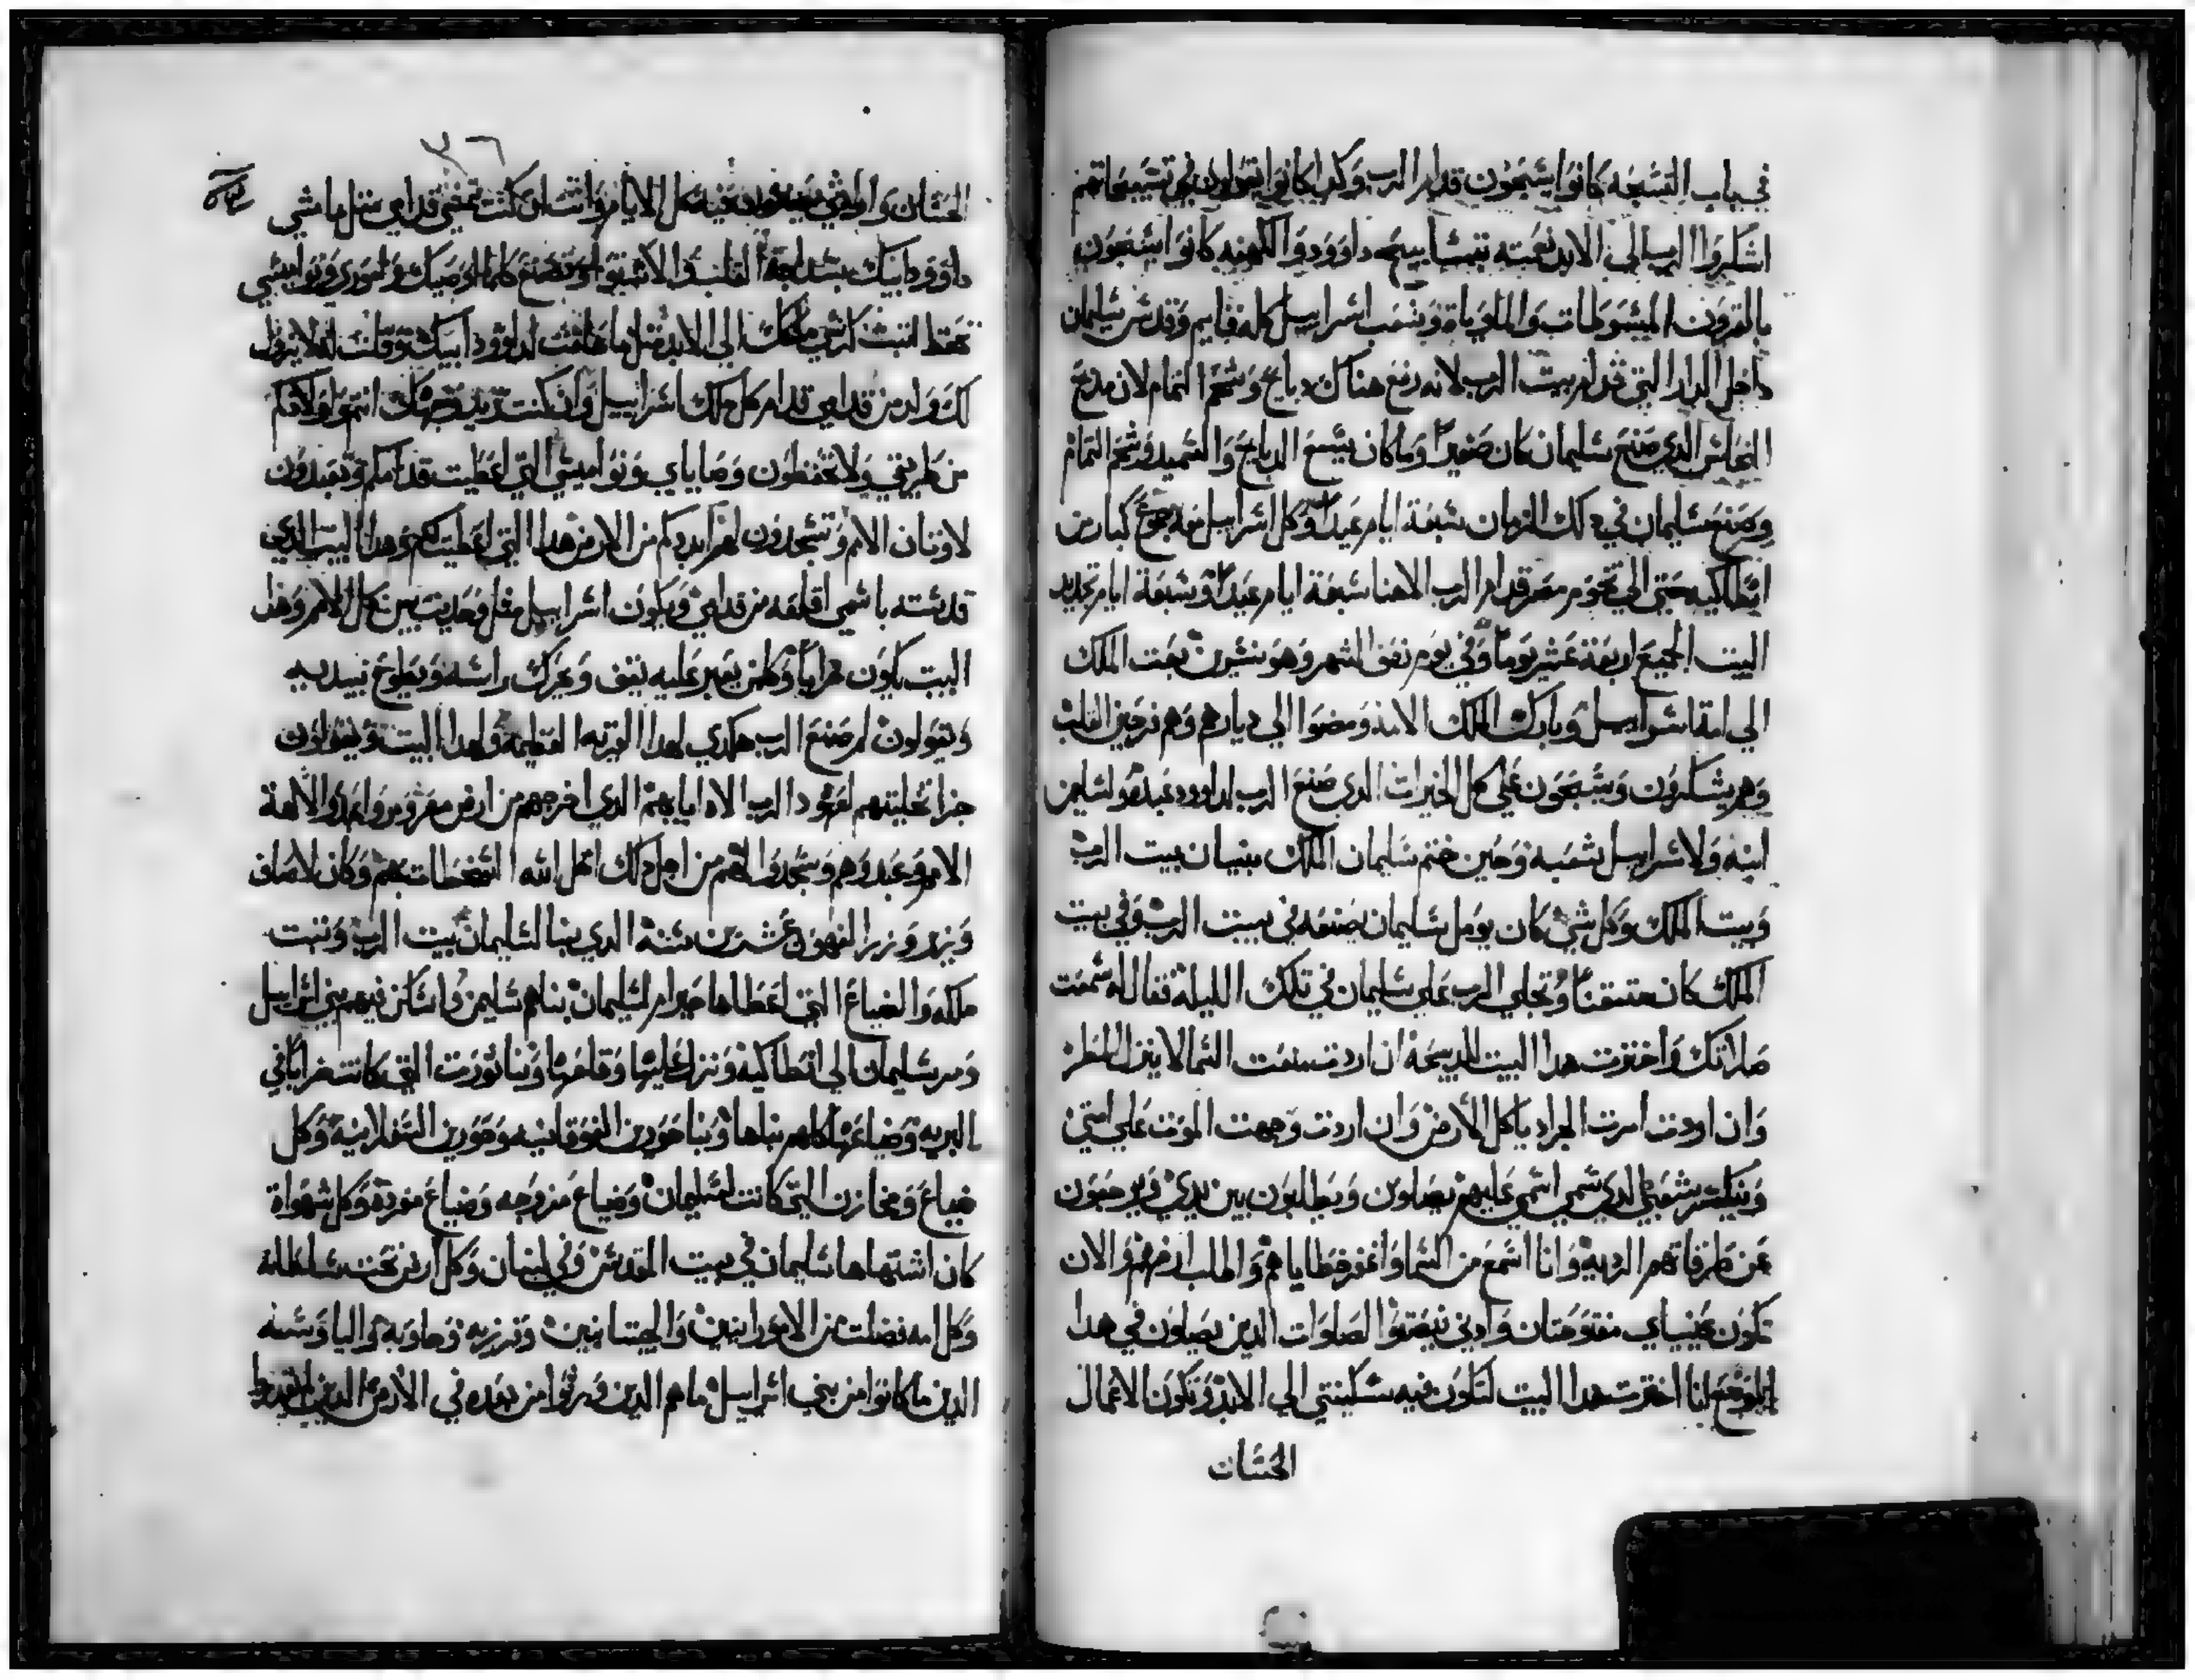 في باب التسبحه كانوا يسبحون قدام الرب وكدا كانوا يقولون في تسبيحاتهم
اشكروا الرب الي الابد نعمته بتسابيح داوود والكهنه كانوا يسبحون
بالقرون المبسوطات والملويات وشعب اسراييل كله قايم وقدس سليمان
داخل الدار التي قدام بيت الرب لانه رفع هناك دبايح وشحم التمام لان مدبح
النحاس الدي صنع سليمان كان صغيرا وما كان يسع الدبايح والسميد وشحم التمام
وصنع سليمان في دلك الزمان سبعة ايام عيدا وكل اسراييل معه جموع كبار من
انطاكيه حتي الي تخوم مصر قدام الرب الاهنا سبعة ايام عيدا وسبعة ايام تجديد
البيت الجميع اربعة عشر يوما وفي يوم نصف الشهر وهو تشرين بعت الملك
الي امة اسراييل وبارك الملك الامه ومضوا الي ديارهم وهم فرحين القلب
وهم يشكرون ويسبحون علي كل الخيرات الدي صنع الرب لداوود عبده ولسليمن
ابنه ولاسراييل شعبه وحين ختم سليمان الملك بنيان بيت الرب
وبيت الملك وكل شي كان يومل سليمان يصنعه في بيت الرب وفي بيت
الملك كان متيقنا وتجلي الرب علي سليمان في تلك الليلة فقال له سمعت
صلاتك واخترت هدا البيت للدبيحة ان اردت منعت السما لا ينزل المطر
وان اردت امرت الجراد ياكل الأرض وان اردت وجهت الموت علي امتي
وينكسر شعبي الدي سمي اسمي عليهم يصلون ويطلبون بين يدي ويرجعون
عن طرقاتهم الرديه وانا اسمع من السما واغفر خطاياهم واطلب ارضهم والان
تكون عينياي مفتوحتان وادني تنصتوا الصلوات الدين يصلون في هدا
الموضع انا اخترت هدا البيت لتكون فيه سكينتي الي الابد وتكون الاعمال
الحسنات
٣٦
الحسنات وارادتي فيه كل الايام وانت ان كنت تمشي قدامي متل ما مشي
داوود ابيك بسداجة القلب والاستوا وتصنع كلما اوصيك واموري ونواميسي
تحفظ اتبت كرسي ملكك الي الابد متل ما عاهدت لداوود ابيك وقلت له لا يزول
لك ولد من قدامي قدام كل ملك اسراييل وان كنت ترد وجهك انتم واولادكم
من طريقي ولا تحفظون وصاياي ونواميسي التي اعطيت قدامكم وتعبدون
لاوتان الامم وتسجدون لهم ابددكم من الارض هدا التي اعطيتكم وهدا البيت الدي
قدسته باسمي اقلعه من قدامي ويكون اسراييل متل وحديت بين كل الامم وهدا
البيت يكون خرابا وكلمن يعبر عليه يقف ويحرك راسه ويطوح بيديه
ويقولون لم صنع الرب هكدي لهدا القريه العظيمه ولهدا البيت ويقولون
جزا تخليتهم لعهود الرب الاه ابايهم الدي اخرجهم من ارض مصر ومروا عبدوا الالهة
الامم وعبدوهم وسجدوا لهم من اجل دلك احل الله السخطات بهم وكان لانصاف
من عشرين سنه الدي بنا سليمان بيت الرب وتبت
ملكه والضياع التي اعطاها حيرام لسليمان بناهم سليمن واسكن فيهم بني اسراييل
ومر سليمان الي انطاكيه ونزل عليها وقلعها وبنا تورت التي كانت خرابا في
البريه وضياعها كلهم بناها وبنا حورين الفوقانيه وحورين السفلانيه وكل
ضياع ومخازن التي كانت لسليمان وضياع مزدوجه وضياع مفردة وكل شهواة
كان اشتهاها سليمان في بيت المقدس وفي لبنان وكل ارض تحت سلطانه
وكل امه فضلت من الامورانيين والحيتانيين وفرزيه وحاويه
الدين ما كانوا من بني اسراييل ما هم الدين ورتوا من بعده في الأرض الدين